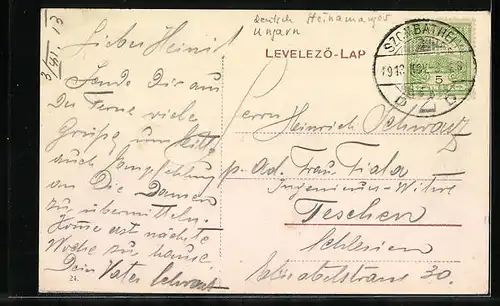 3/XI. 13
Lieber Heini!
Sende Dir aus
Der Ferne viele
Grüße, um bitte
auch Empfehlung
an Die Damen
zu übermitteln.
Komme erst nächste
Woche zu hause.
Dein Vater Schwarz
24.
Deutsch Heinamayor
Ungarn
LEVELEZŐ-LAP
SZOMBATHELY
1913
5
Herrn
Heinrich Schwarz
p. Ad. Frau Fiala
Ingenieurs-Witwe
Teschen
Schlesien
Elisabethstrasse 30.